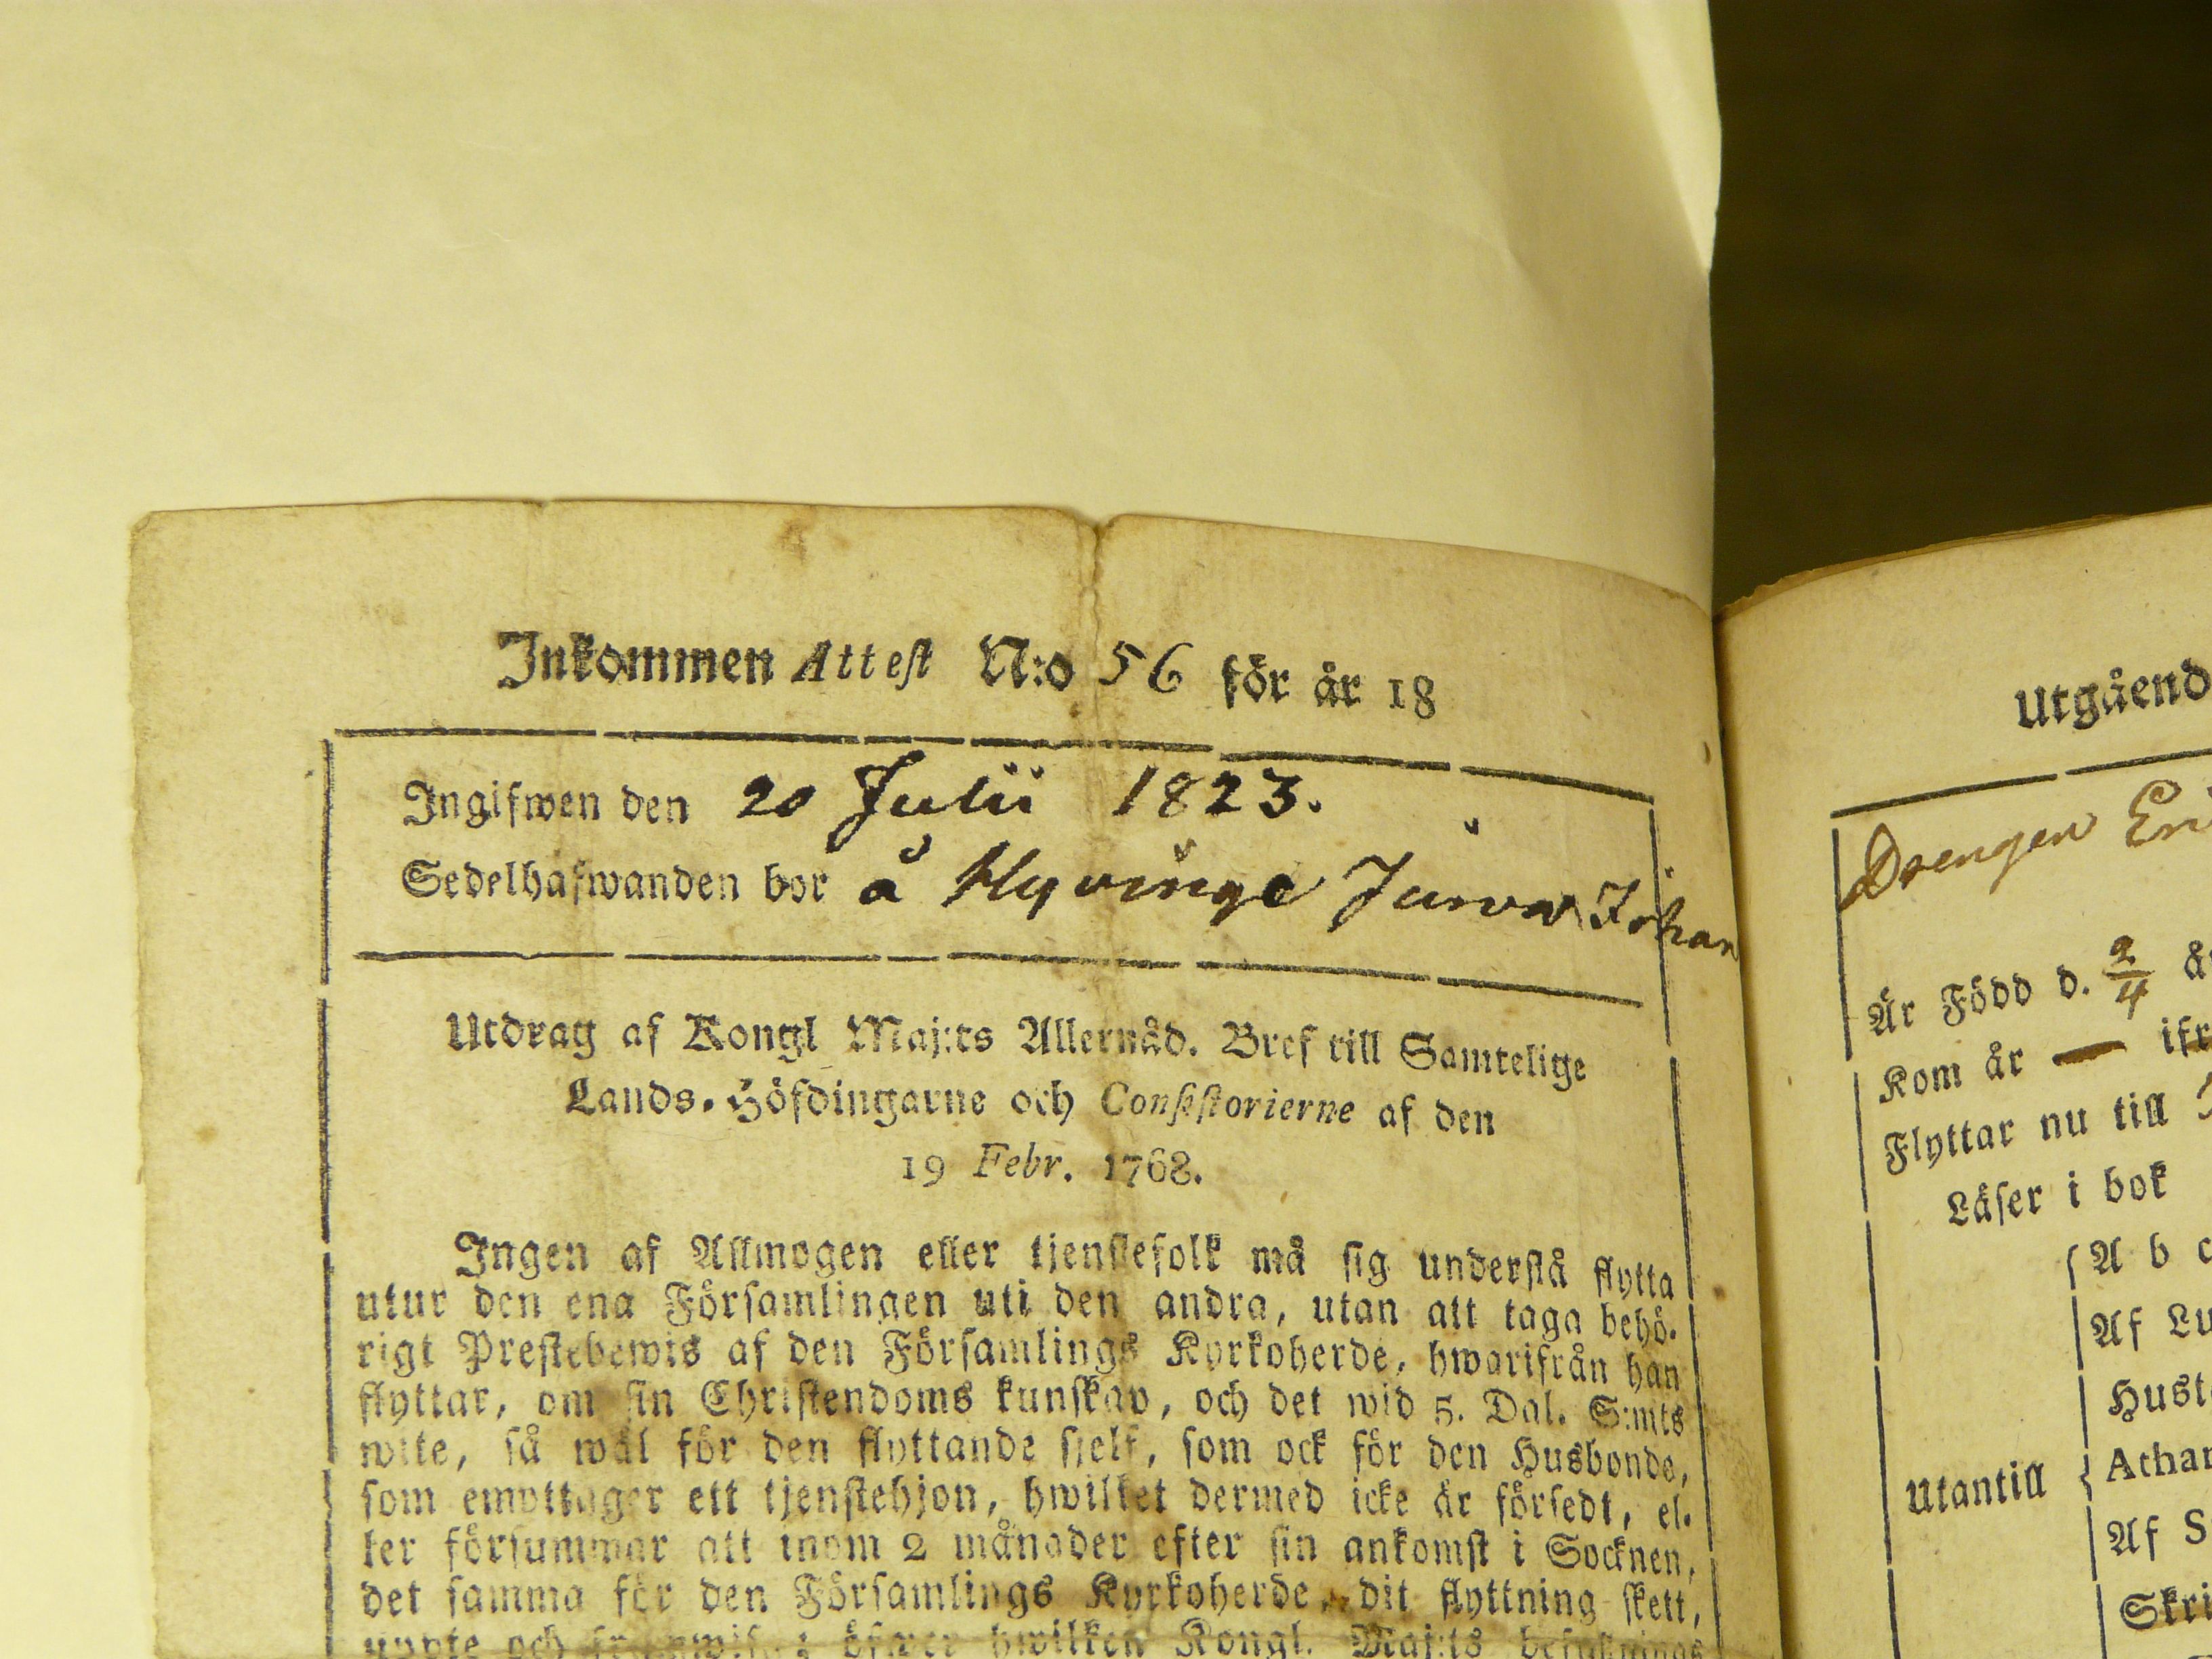 Inkommen Attest N:o 56 för år 18
Ingifwen den 20 Julii 1823.
Sedelhafwanden bor å Hyvinge Juwa Johan
Utdrag af Kongl Maj:ts Allernåd. Bref till Samtelige
Lands-Höfdingarne och Consistorierne af den
19 Febr. 1768.
Ingen af Allmogen eller tjenstefolk må sig understå flytta
utur den ena Församlingen uti den andra, utan att taga behö-
rigt Prestebewis af den Församlings Kyrkoherde, hwarifrån han
flyttar, om sin Christendoms kunskap, och det wid 5. Dal. S:mts
wite, så wäl för den flyttande sjelf, som ock för den Husbonde,
som emottager ett tjenstehjon, hwilket dermed icke är försedt, el-
ler försummar att inom 2 månader efter sin ankomst i Socknen,
det samma för den Församlings Kyrkoherde, dit flyttning skett,
och öfwer hwilken Kongl. Maj:ts
Utgåend
Drengen Eri
Är Född d. 2/4 år
Kom år — ifr
Flyttar nu till
Läser i bok
Utantill
A b c
Af Lu
Hust
Athan
Af S
Skri